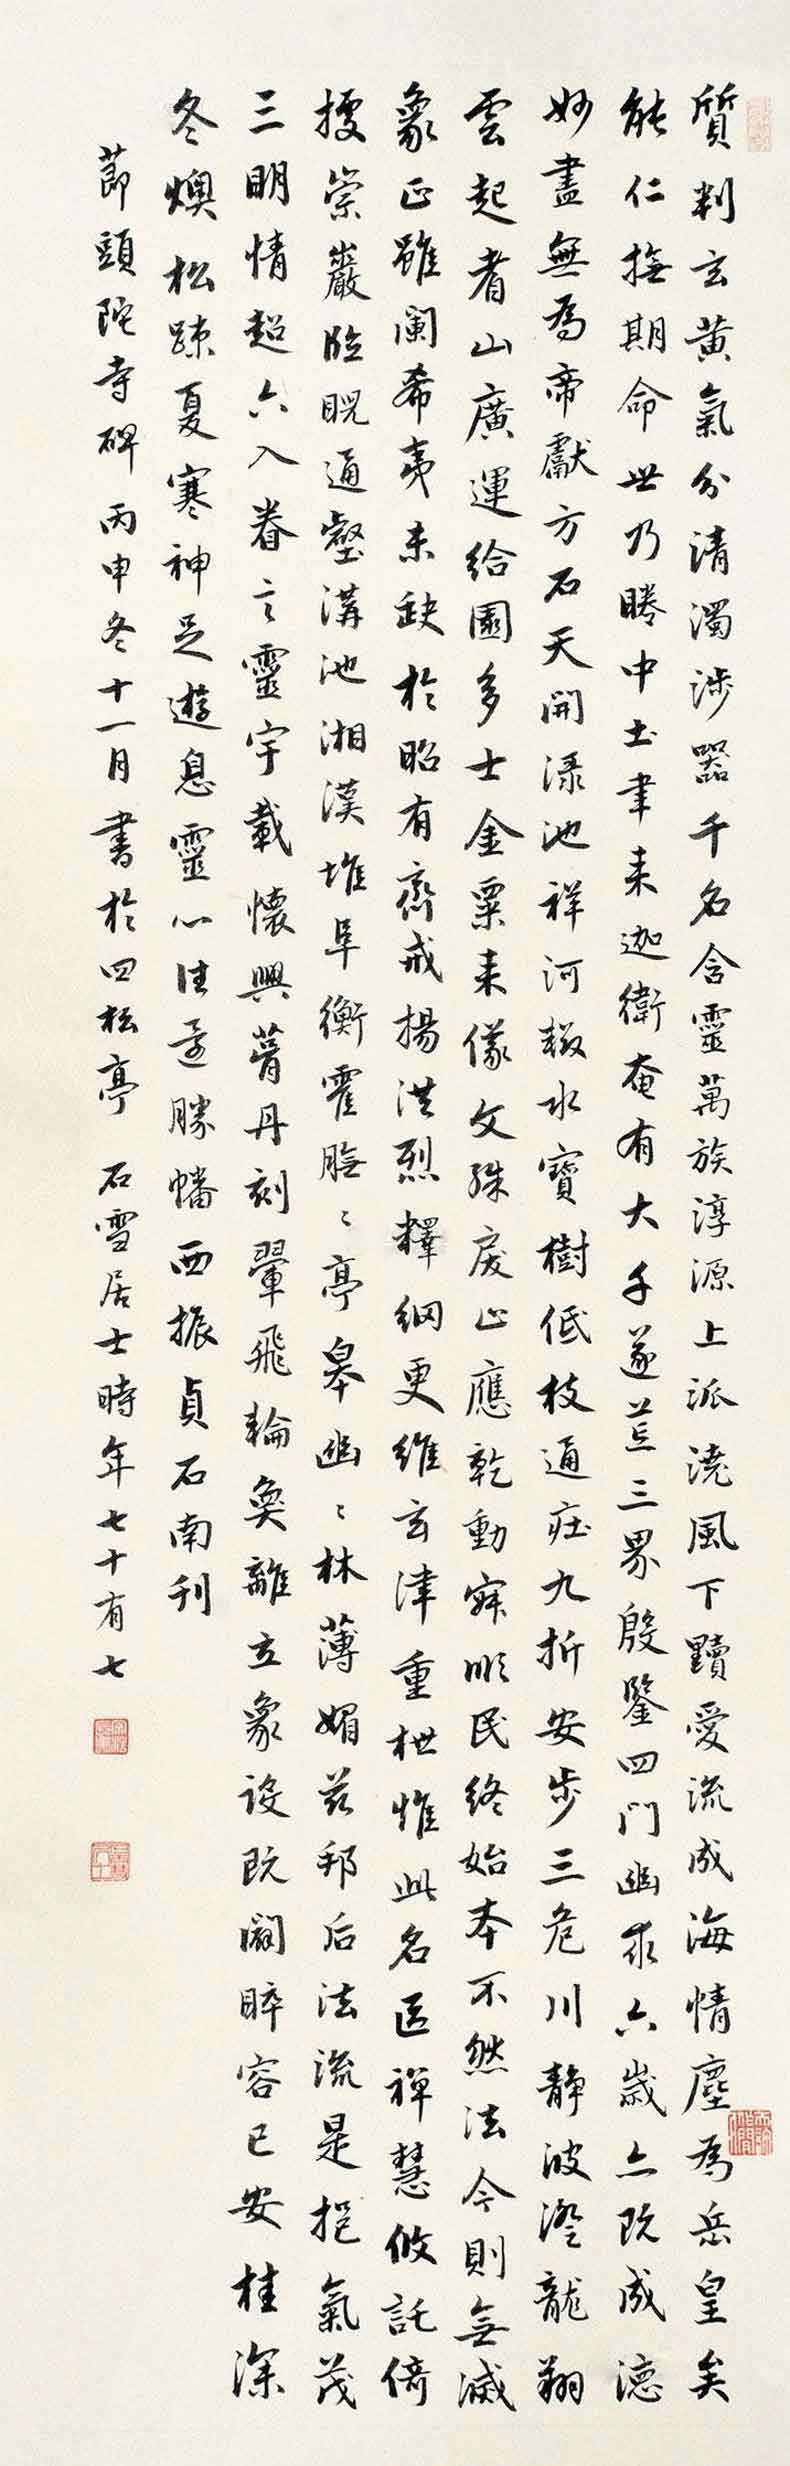 質判玄黃氣分清濁涉器千名含靈萬族淳源上派澆風下黷愛流成海情塵為岳皇矣
能仁撫期命世乃睠中土聿來迦衛奄有大千遂荒三界殷鑒四門幽求六歲亦既成德
妙盡無為帝獻方石天開淥池祥河輟水寶樹低枝通莊九折安步三危川靜波澄龍翔
雲起耆山廣運給園多士金粟來儀文殊戾止應乾動寂順民終始本不然法今則無滅
象正雖闌希夷未缺於昭有齊戒揚洪烈釋網更維玄津重枻惟此名區禪慧攸託倚
據崇巖臨睨通壑溝池湘漢堆阜衡霍膴〻亭皋幽〻林薄媚茲邦后法流是挹氣茂
三明情超六入眷言靈宇載懷興葺丹刻翬飛輪奐離立象設既闢睟容已安桂深
冬燠松疎夏寒神足遊息靈心往還勝幡西振貞石南刊
節頭陀寺碑 丙申冬十一月書於四松亭 石雪居士時年七十有七